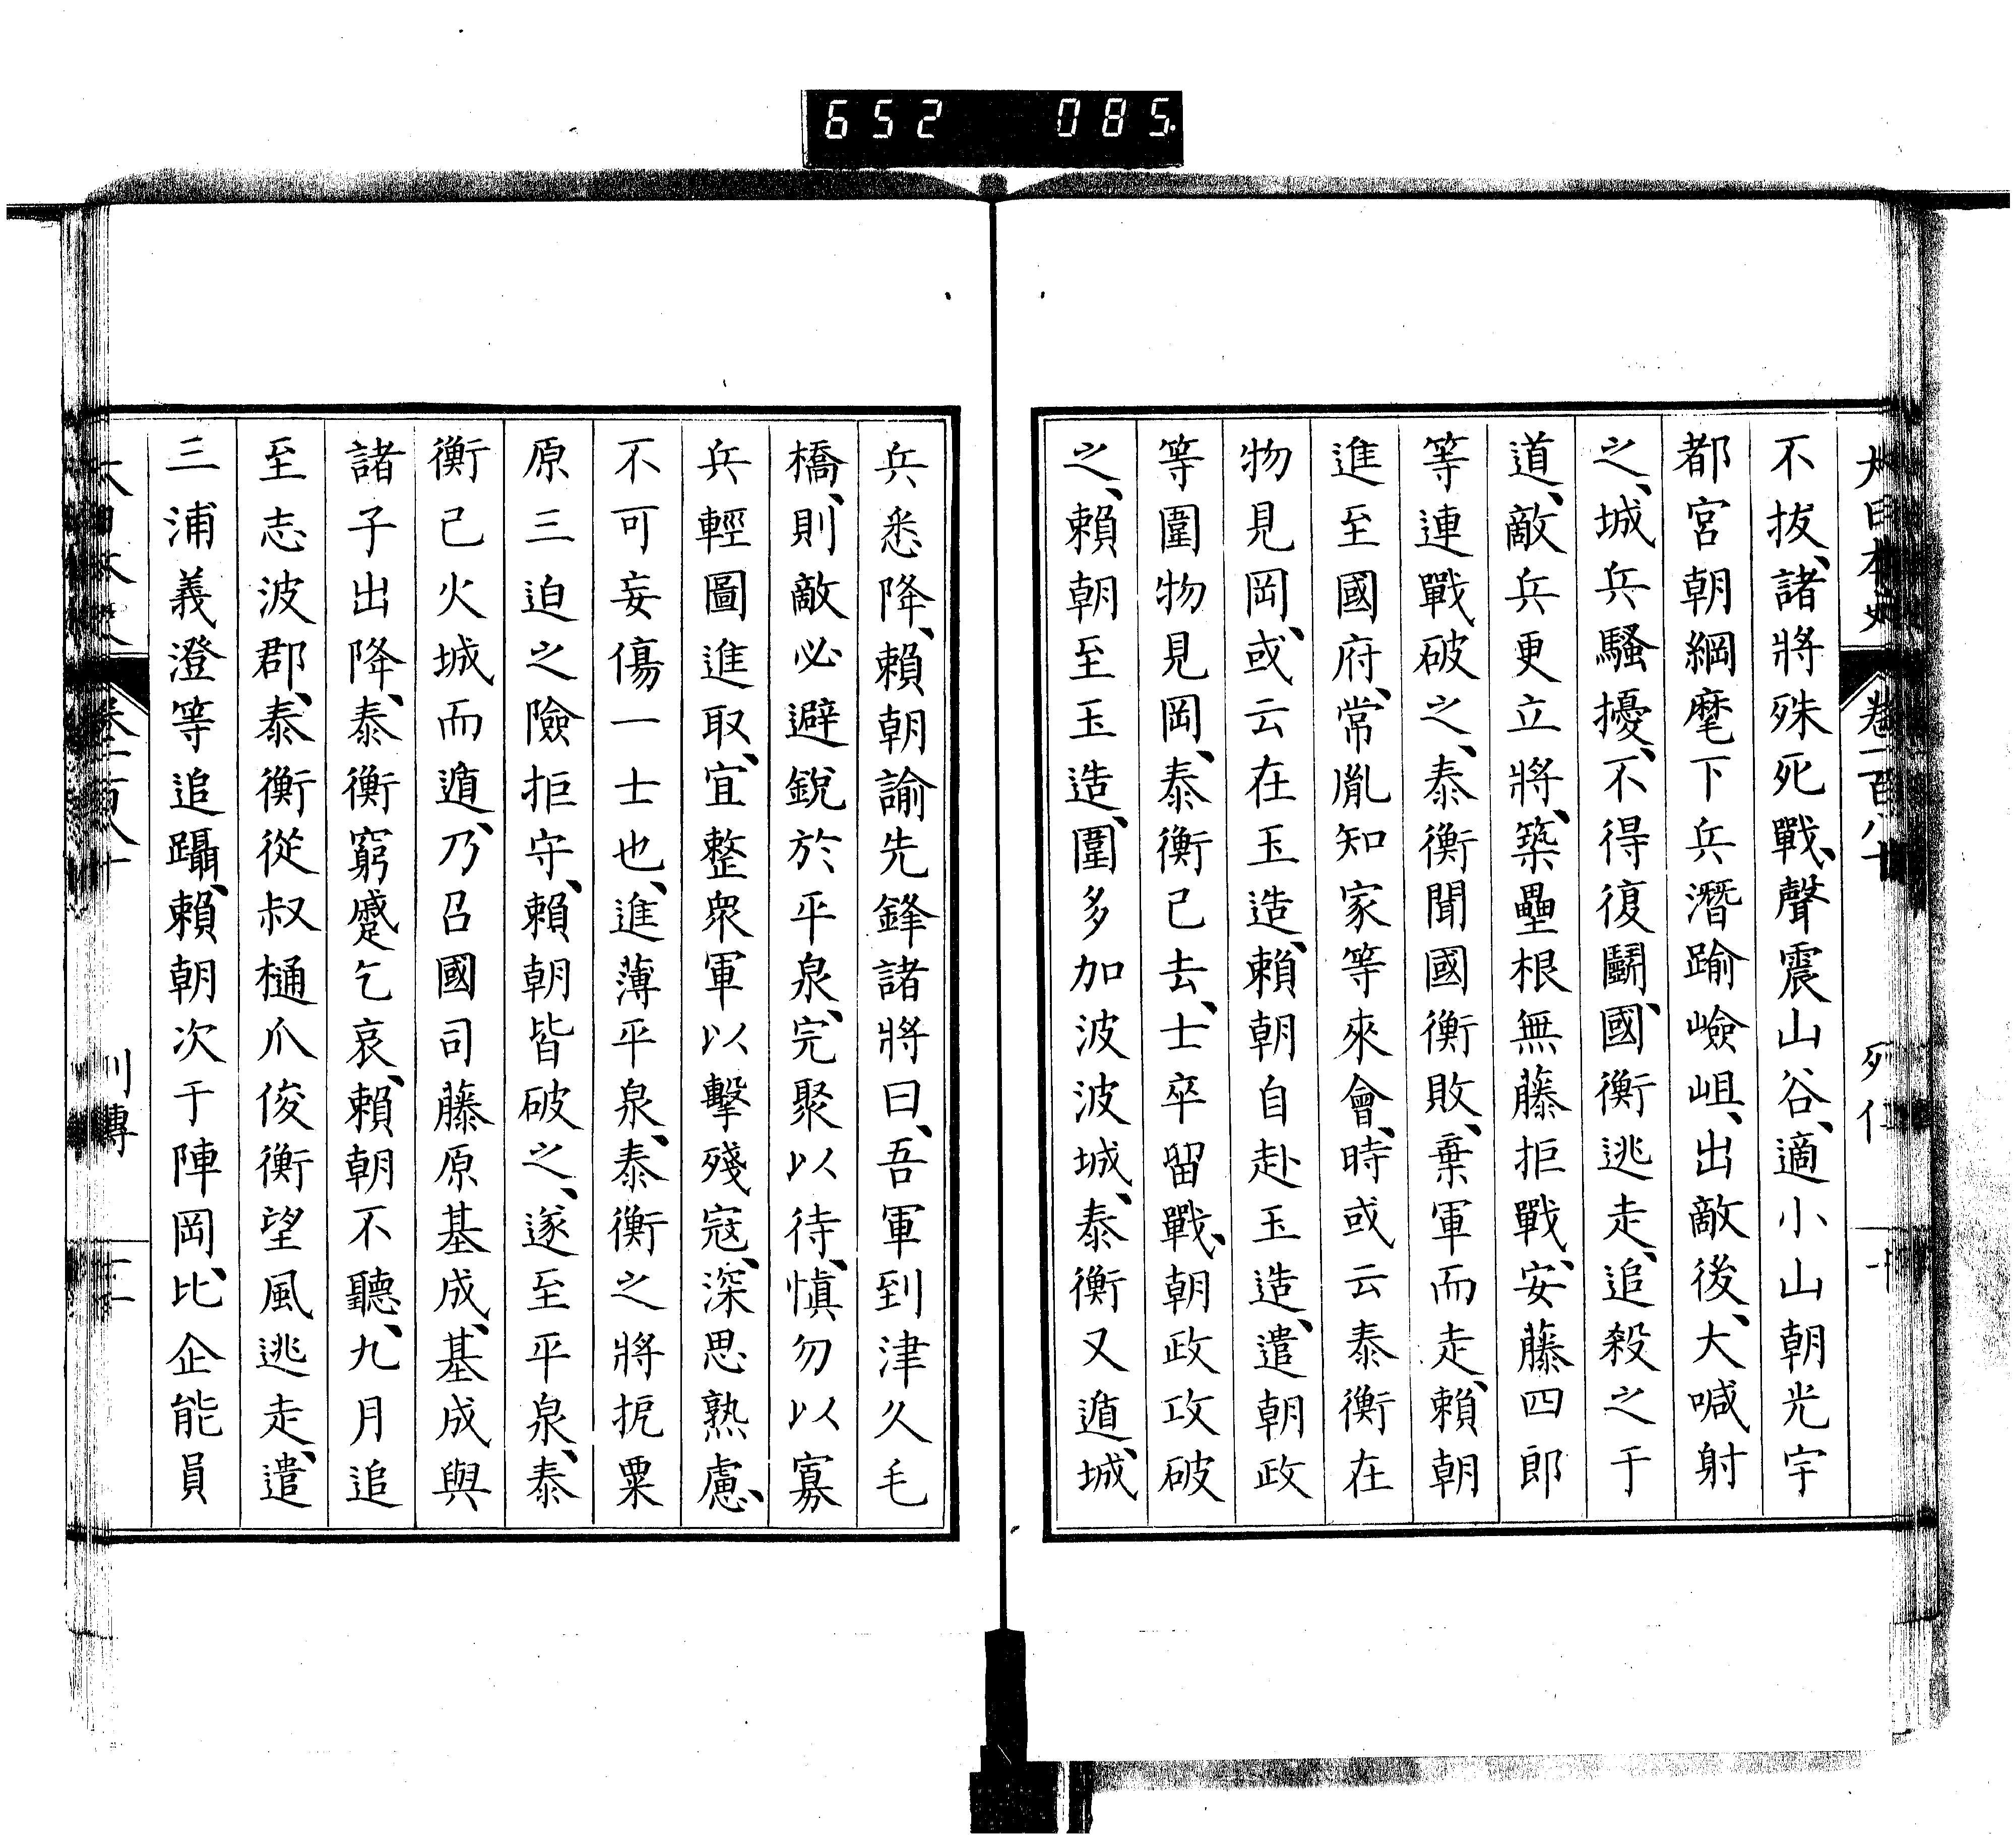 652 085
大日本史 卷一百八十 列傳
不拔、諸將殊死戰、聲震山谷、適小山朝光宇
都宮朝綱麾下兵潛踰嶮岨、出敵後、大喊射
之、城兵騷擾、不得復鬪、國衡逃走、追殺之于
道、敵兵更立將、築壘根無藤拒戰、安藤四郎
等連戰破之、泰衡聞國衡敗、棄軍而走、賴朝
進至國府、常胤知家等來會、時或云泰衡在
物見岡、或云在玉造、賴朝自赴玉造、遣朝政
等圍物見岡、泰衡已去、士卒留戰、朝政攻破
之、賴朝至玉造、圍多加波波城、泰衡又遁、城
兵悉降、賴朝諭先鋒諸將曰、吾軍到津久毛
橋、則敵必避銳於平泉、完聚以待、愼勿以寡
兵輕圖進取、宜整衆軍以擊殘寇、深思熟慮、
不可妄傷一士也、進薄平泉、泰衡之將扼粟
原三迫之險拒守、賴朝皆破之、遂至平泉、泰
衡已火城而遁、乃召國司藤原基成、基成與
諸子出降、泰衡窮蹙乞哀、賴朝不聽、九月追
至志波郡、泰衡從叔樋爪俊衡望風逃走、遣
三浦義澄等追躡、賴朝次于陣岡、比企能員
大日本史 卷一百八十 列傳